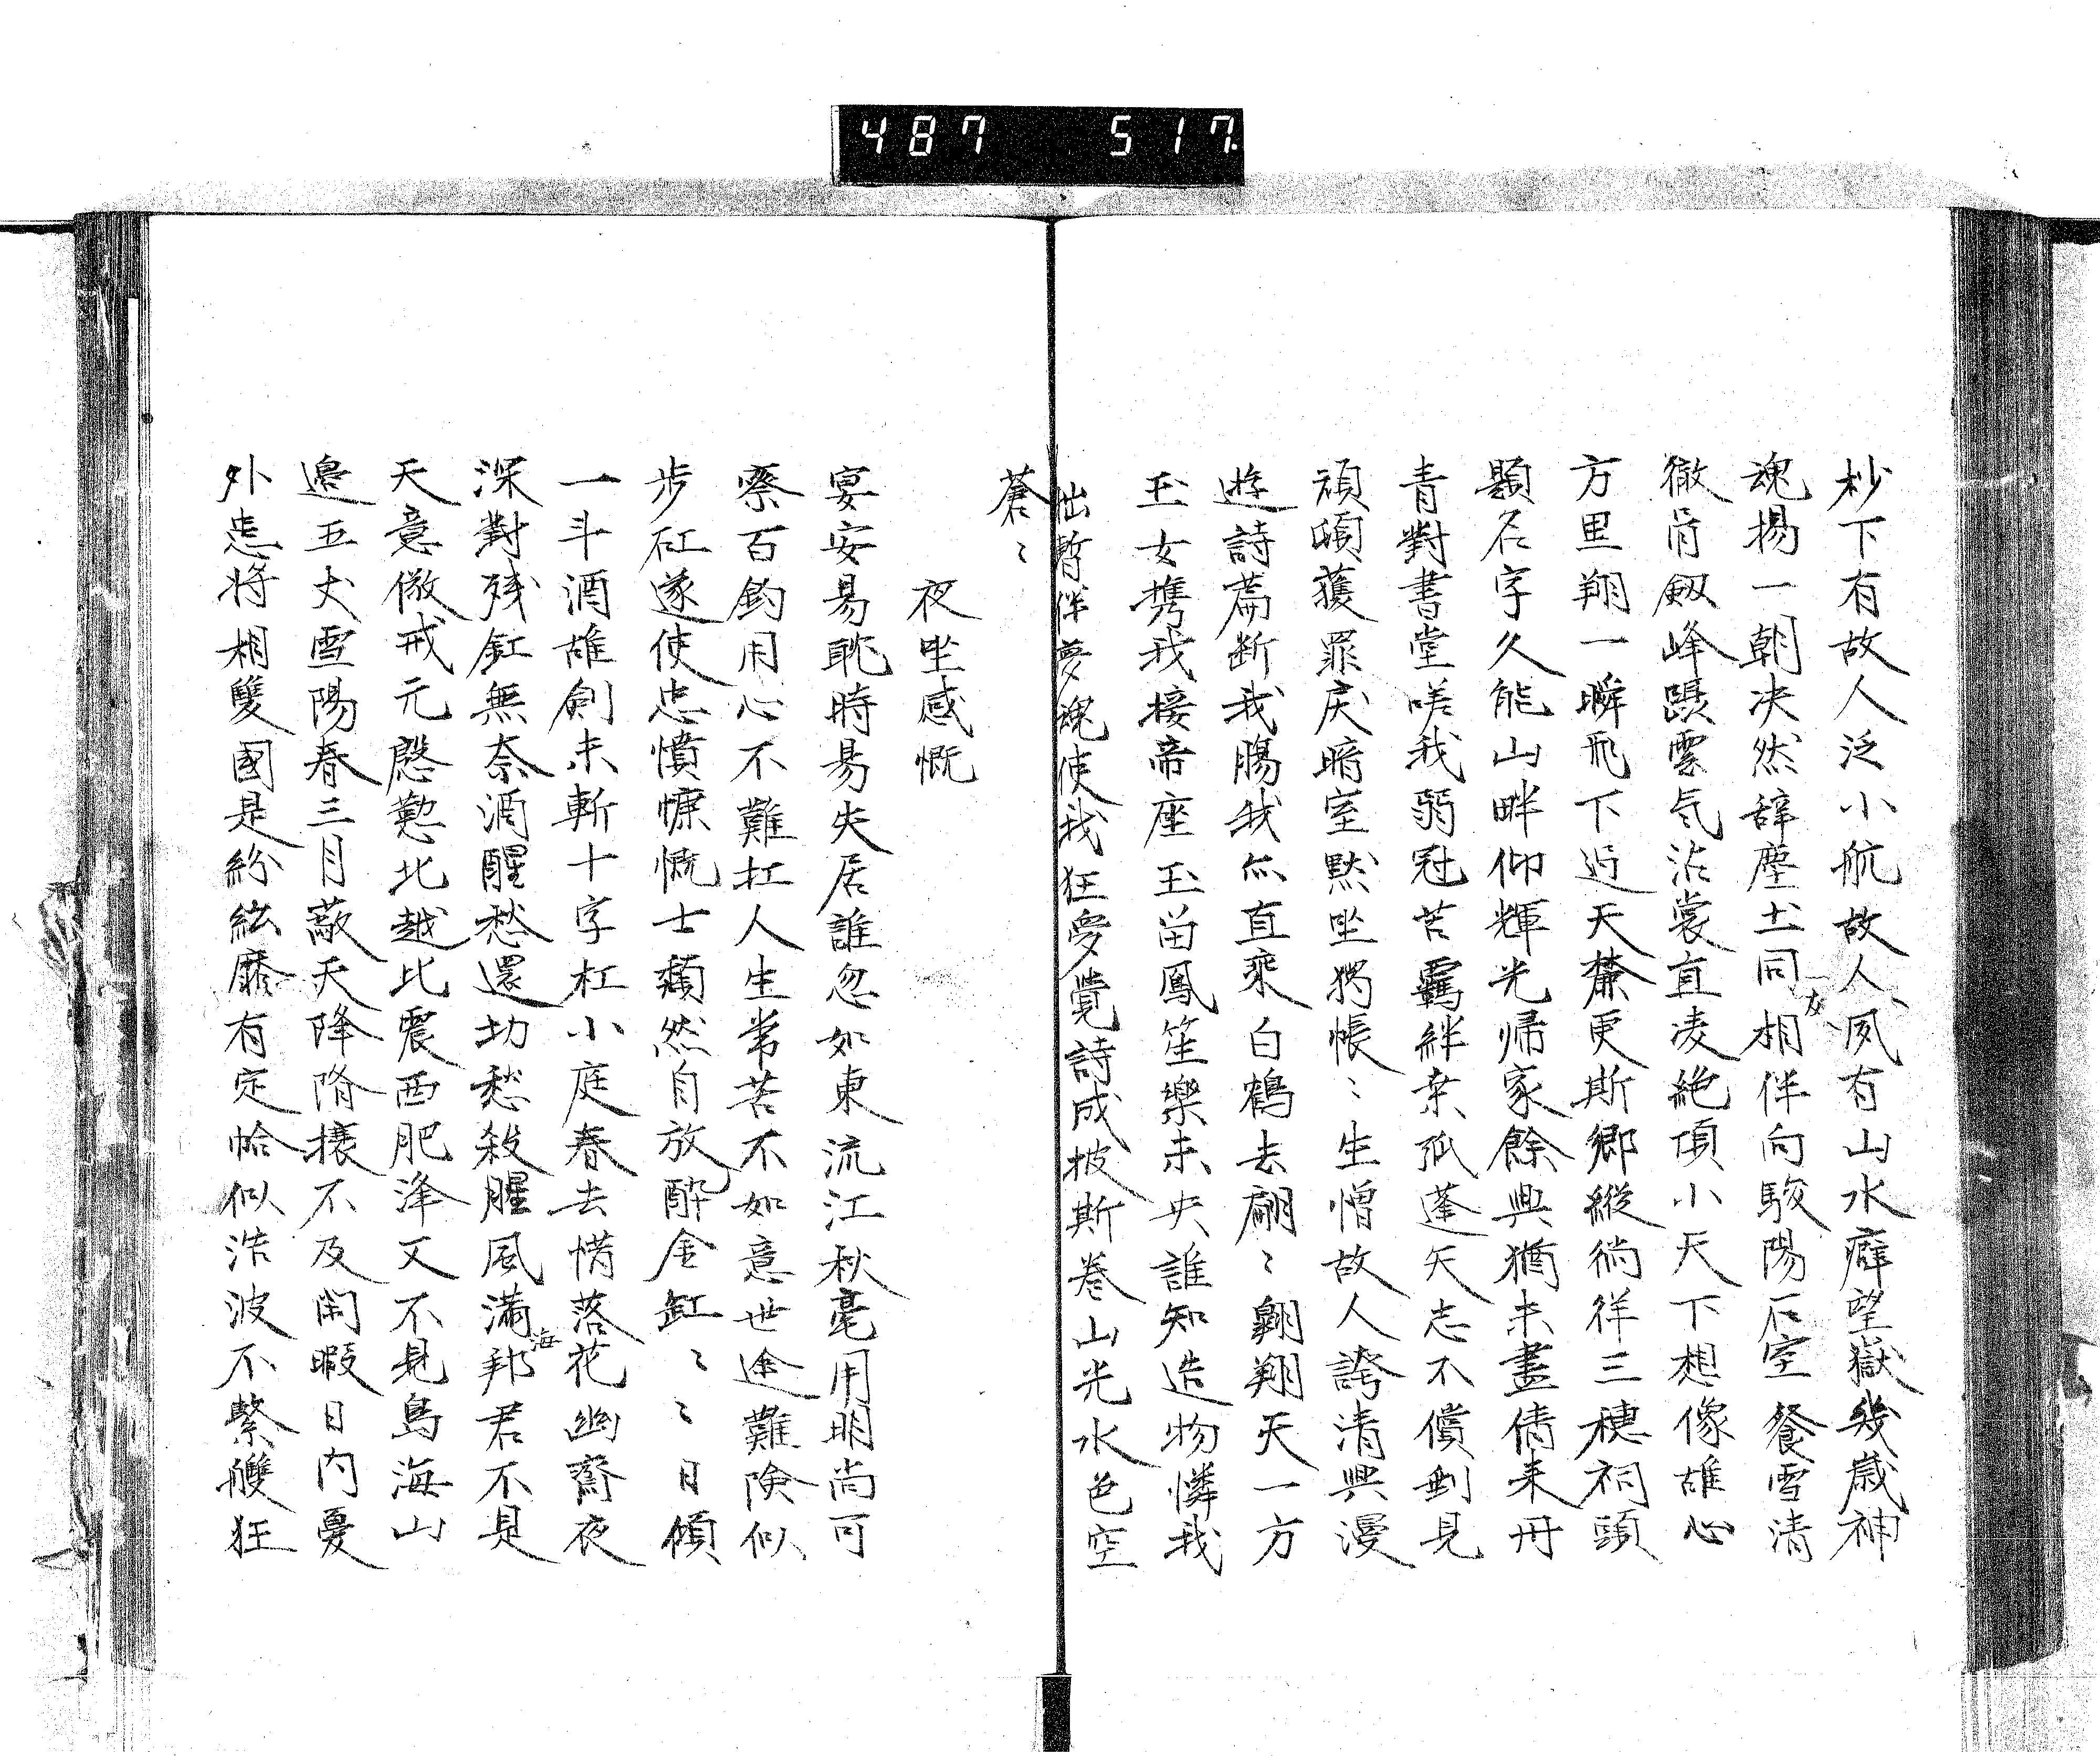 487 517
杪下有故人泛小航故人夙有山水癖望嶽幾歲神
魂揚一朝决然辞塵土同友相伴向駿陽石室餐雪清
徹骨劔峰躡雲気沾裳直凌絶頂小天下想像雄心
方里翔一瞬飛下近天麓更斯郷縦徜徉三穂祠頭
題名字久能山畔仰輝光帰家餘興猶未盡倩来丹
青對書堂嗟我弱冠苦羈絆桒弧蓬矢志不償剰見
頑頤獲罪戻暗室黙坐独悵〻生憎故人誇清興漫
遊詩篇断我膓我亦直乘白鶴去翩〻翺翔天一方
玉女携我接帝座玉笛鳳笙樂未央誰知造物憐我
出暫伴夢魂使我狂夢覺詩成披斯巻山光水色空
蒼〻
夜坐感慨
宴安易耽時易失居諸忽如東流江秋毫用明尚可
察百鈞用心不難扛人生常苦不如意世途難険似
步矼遂使忠憤慷慨士頽然自放酔金缸〻〻日傾
一斗酒雄劍未斬十字杠小庭春去惜落花幽齋夜
深對残釭無奈酒醒愁還切愁殺腥風満海邦君不見
天意儆戒元慇懃北越比震西肥浲又不見鳥海山
邉五丈雪陽春三月蔽天降脩攘不及閑暇日内憂
外恚将相雙國是紛紜靡有定恰似浩波不繫艭狂